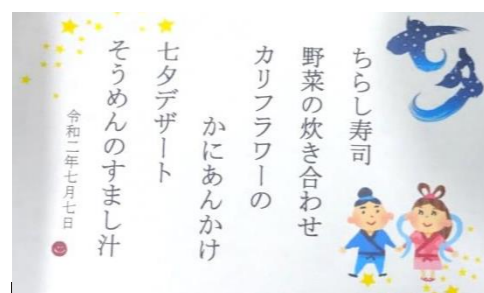 七夕
ちらし寿司
野菜の炊き合わせ
カリフラワーの
かにあんかけ
七夕デザート
そうめんのすまし汁
令和二年七月七日